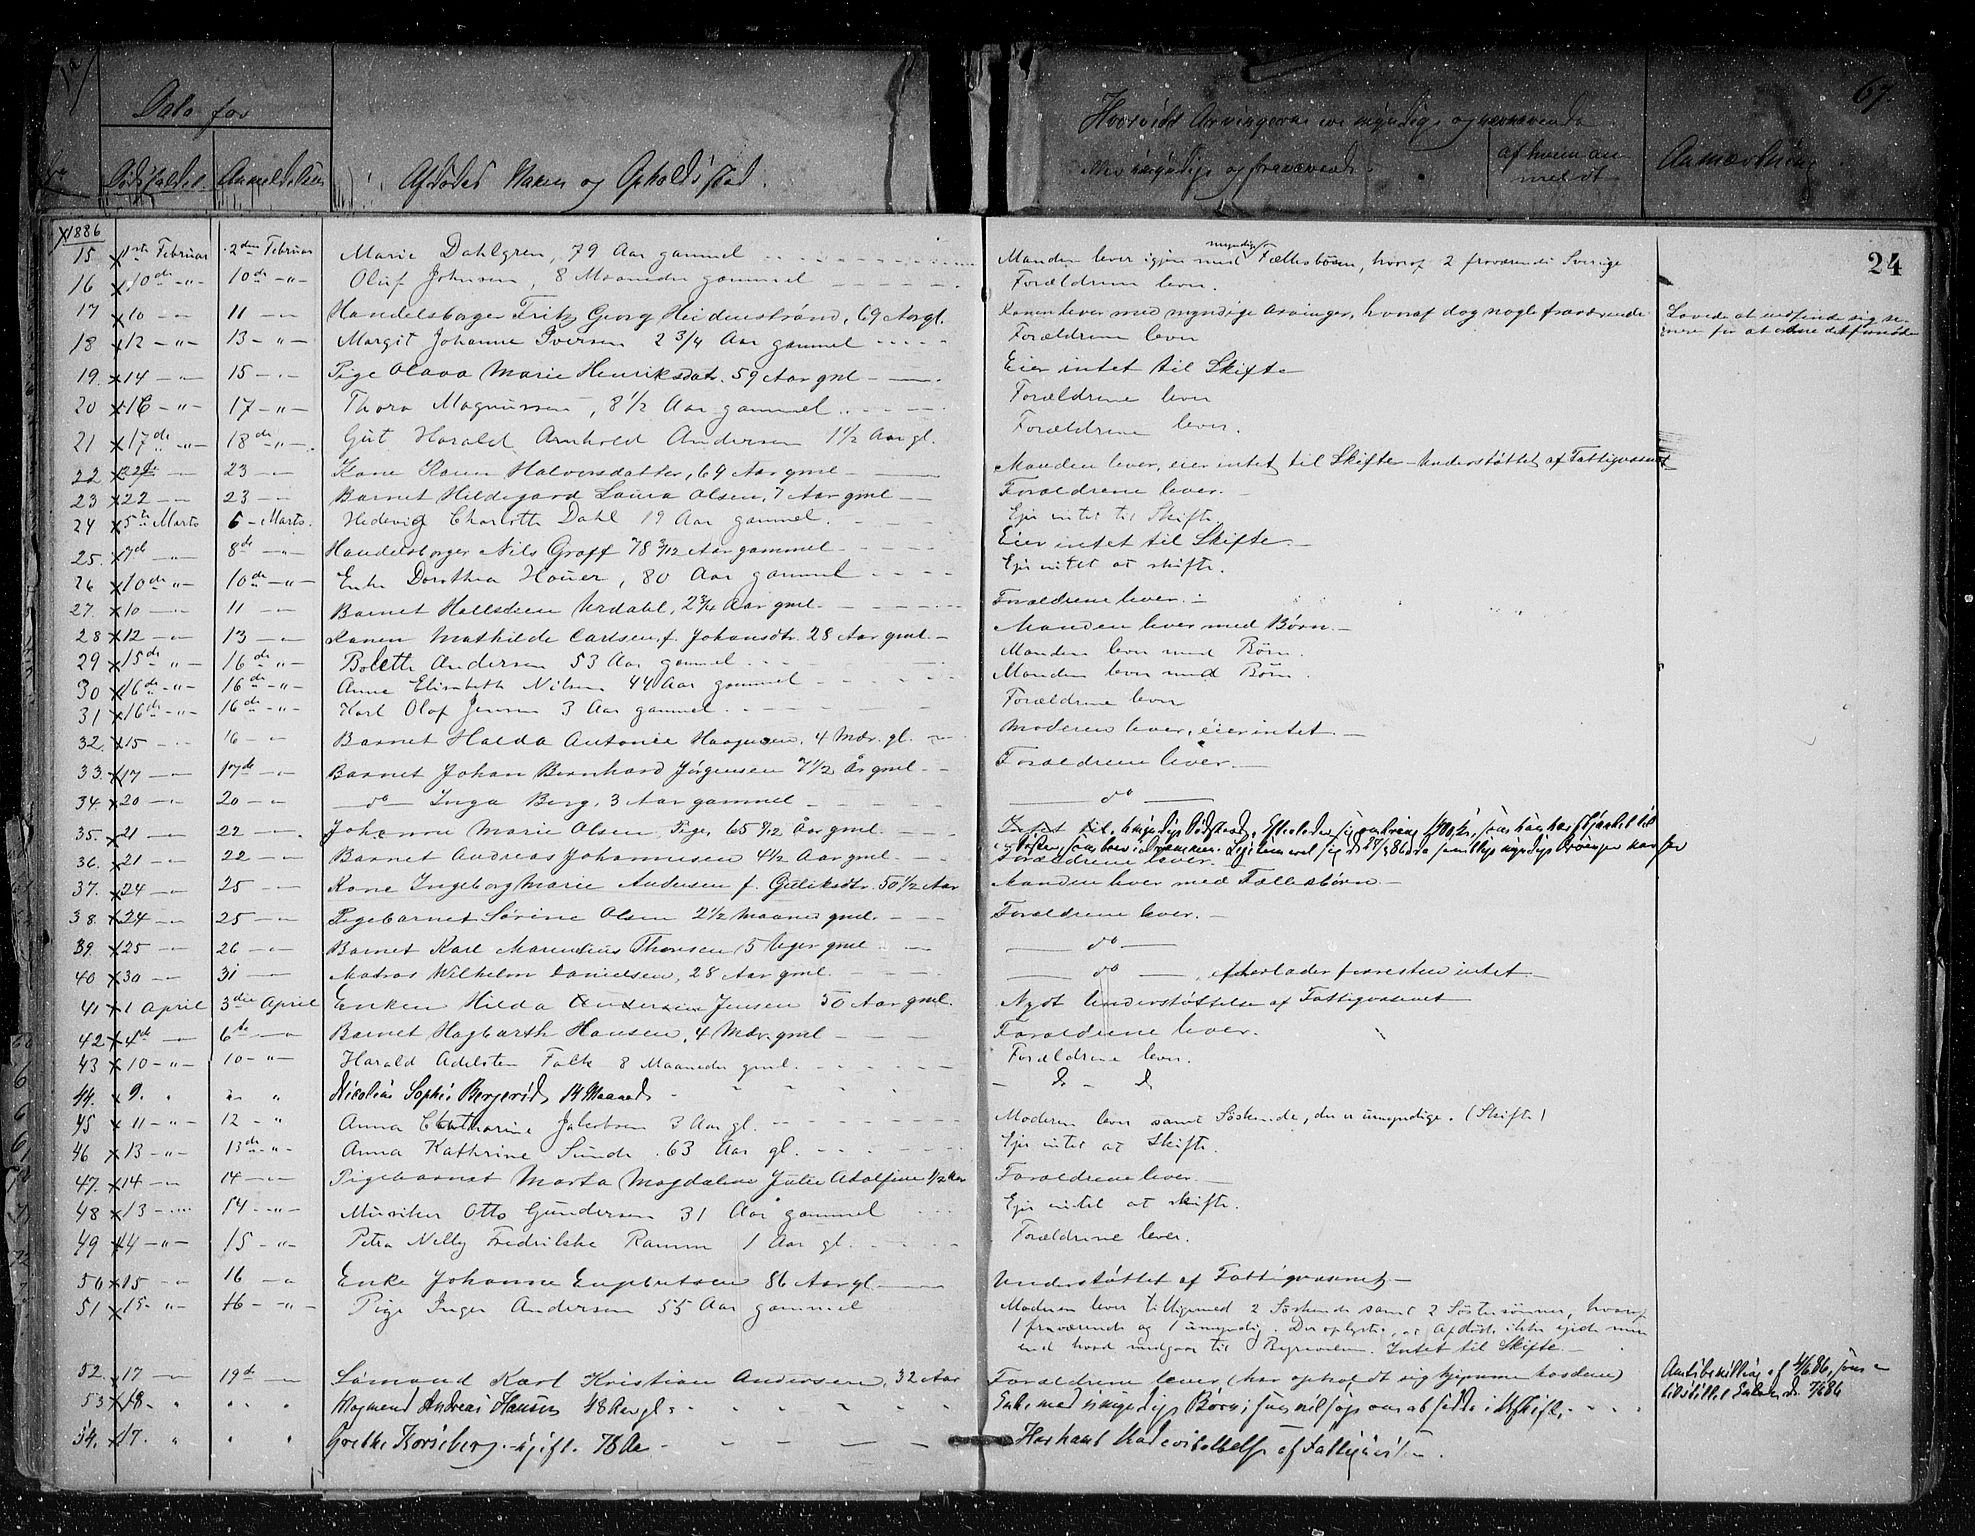 67
Dato for
Hvorvidt Arvingerne ere myndige og nærværende
Dødsfaldet. Anmeldelsen
Afdødes Navn og Opholdssted.
eller umyndige og fraværende.
af hvem anmeldt
Anmærkning
24
1886
15 1ste Februar 2den Februar Marie Dahlgren, 79 Aar gammel Manden lever igjen med myndige Fællesbørn, hvoraf 2 fraværende i Sverige
16 10de -"- 10de -"- Oluf Johnsen, 8 Maaneder gammel Forældrene lever.
17 10 -"- 11 -"- Handelsborger Fritz Georg Heidenstrøm, 69 Aar gl. Konen lever med myndige Arvinger, hvoraf dog nogle fraværende Lovede at indfinde sig senere for at ordne det fornødne
18 12 -"- 13 -"- Margit Johanne Iversen 2 3/4 Aar gammel Forældrene lever
19. 14 -"- 15 -"- Pige Olava Marie Henriksdatr. 59 Aar gml Eier intet til Skifte
20 16 -"- 17 -"- Thora Magnussen, 8 1/2 Aar gammel Forældrene lever
21 17de -"- 18de -"- Gut Harald Arnhold Andersen 1 1/2 Aar gl. Forældrene lever.
22 22de -"- 23 -"- Kone Karen Halvorsdatter, 69 Aar gml Manden lever, eier intet til Skifte - Understøttet af Fattigvæsnet
23 22 -"- 23 -"- Barnet Hildegard Laura Olsen, 7 Aar gml Forældrene lever.
24 5te Marts 6 - Marts. Hedevig Charlotte Dahl 19 Aar gammel. Ejer intet til Skifte.
25. 7de -"- 8de -"- Handelsborger Nils Graff 78 3/12 Aar gammel Eier intet til Skifte.
26 10de -"- 10de -"- Enke Dorothea Houer, 80 Aar gammel Ejer intet at skifte.
27. 10 -"- 11 -"- Barnet Hallsteen Urdahl, 2 3/4 Aar gml. Forældrene lever.
28 12 -"- 13 -"- Konen Mathilde Carlsen, f. Johansdtr. 28 Aar gml. Manden lever med Børn.
29 15de -"- 16de -"- Bolette Andersen 53 Aar gammel Manden lever med Børn.
30 16de -"- 16de -"- Anne Elisabeth Nilsen 44 Aar gammel Manden lever med Børn
31 16de -"- 16de -"- Karl Olof Jensen 3 Aar gammel. Forældrene lever
32. 15 -"- 16 -"- Barnet Halda Antonie Haagensen, 4 Mdr. gl. Moderen lever, eier intet.
33. 17 -"- 17de -"- Barnet Johan Bernhard Jørgensen 7 1/2 År gml Forældrene lever.
34. 20 -"- 20 -"- do Inga Berg, 3 Aar gammel do
35. 21 -"- 22 -"- Johanne Marie Olsen, Pige, 65 9/12 Aar gml.
36. 21 -"- 22 -"- Barnet Andreas Johannesen 4 1/2 Aar gml. Forældrene lever.
37. 24 -"- 25 -"- Kone Ingeborg Marie Andersen f. Guliksdtr. 50 1/2 Aar Manden lever med Fællesbørn
38. 24 -"- 25 -"- Pigebarnet Sørine Olsen 2 1/2 Maaned gml. Forældrene lever.
39. 25 -"- 26 -"- Barnet Karl Marendius Thoresen, 5 Uger gml do
40 30 -"- 31 -"- Matros Wilhelm Danielsen, 28 Aar gml. do, efterlader forresten intet
41 1 April 3die April Enken Hilda Andersen Jensen 50 Aar gml. Nydt Understøttelse af Fattigvæsnet
42 4de -"- 6te -"- Barnet Hagbarth Hansen, 4 Mdr. gml Forældrene lever.
43 10 -"- 10 -"- Harald Adelsten Falk 8 Maaneder gml. Forældrene lever.
44. 9. " " " Nicoline Sophie Bergerød, 14 Maaned
45 11 -"- 12 -" Anna Chatharine Jakobsen 3 Aar gl. Moderen lever samt Søskende, der er umyndige. (Skifte)
46 13 -"- 13de -"- Anna Kathrine Sunde. 63 Aar gl. Ejer intet at Skifte.
47. 14 -"- 14 -"- Pigebarnet Marta Magdalene Julie Adolfine 1/2 Aar Forældrene lever.
48 13 -"- 14 -"- Musiker Otto Gundersen 31 Aar gammel Ejer intet at skifte.
49 14 -"- 15 -"- Petra Nelly Fredrikke Ramm 1 Aar gl. Forældrene lever.
50 15 -"- 16 -" Enke Johanne Engbretsen 86 Aar gl. Understøttet af Fattigvæsnet
51 15 -"- 16 -"- Pige Inger Andersen 55 Aar gammel Moderen lever tilligemed 2 Søskende samt 2 Søstersønner, hvoraf
1 fraværende og 1 umyndig. Der oplystes, at Afdøde ikke ejede mer
end hvad medgaar til Begravelsen. Intet til Skifte
52. 17 -"- 19de -"- Sømand Karl Kristian Andersen, 32 Aar Forældrene lever (har opholdt sig hjemme hos dem)
53 18. " " " Andreas Hansen 48 Aar gl. Enke med umyndige Børn;
54. 17. " " " Grethe Korseberg. ugift. 78 Aar